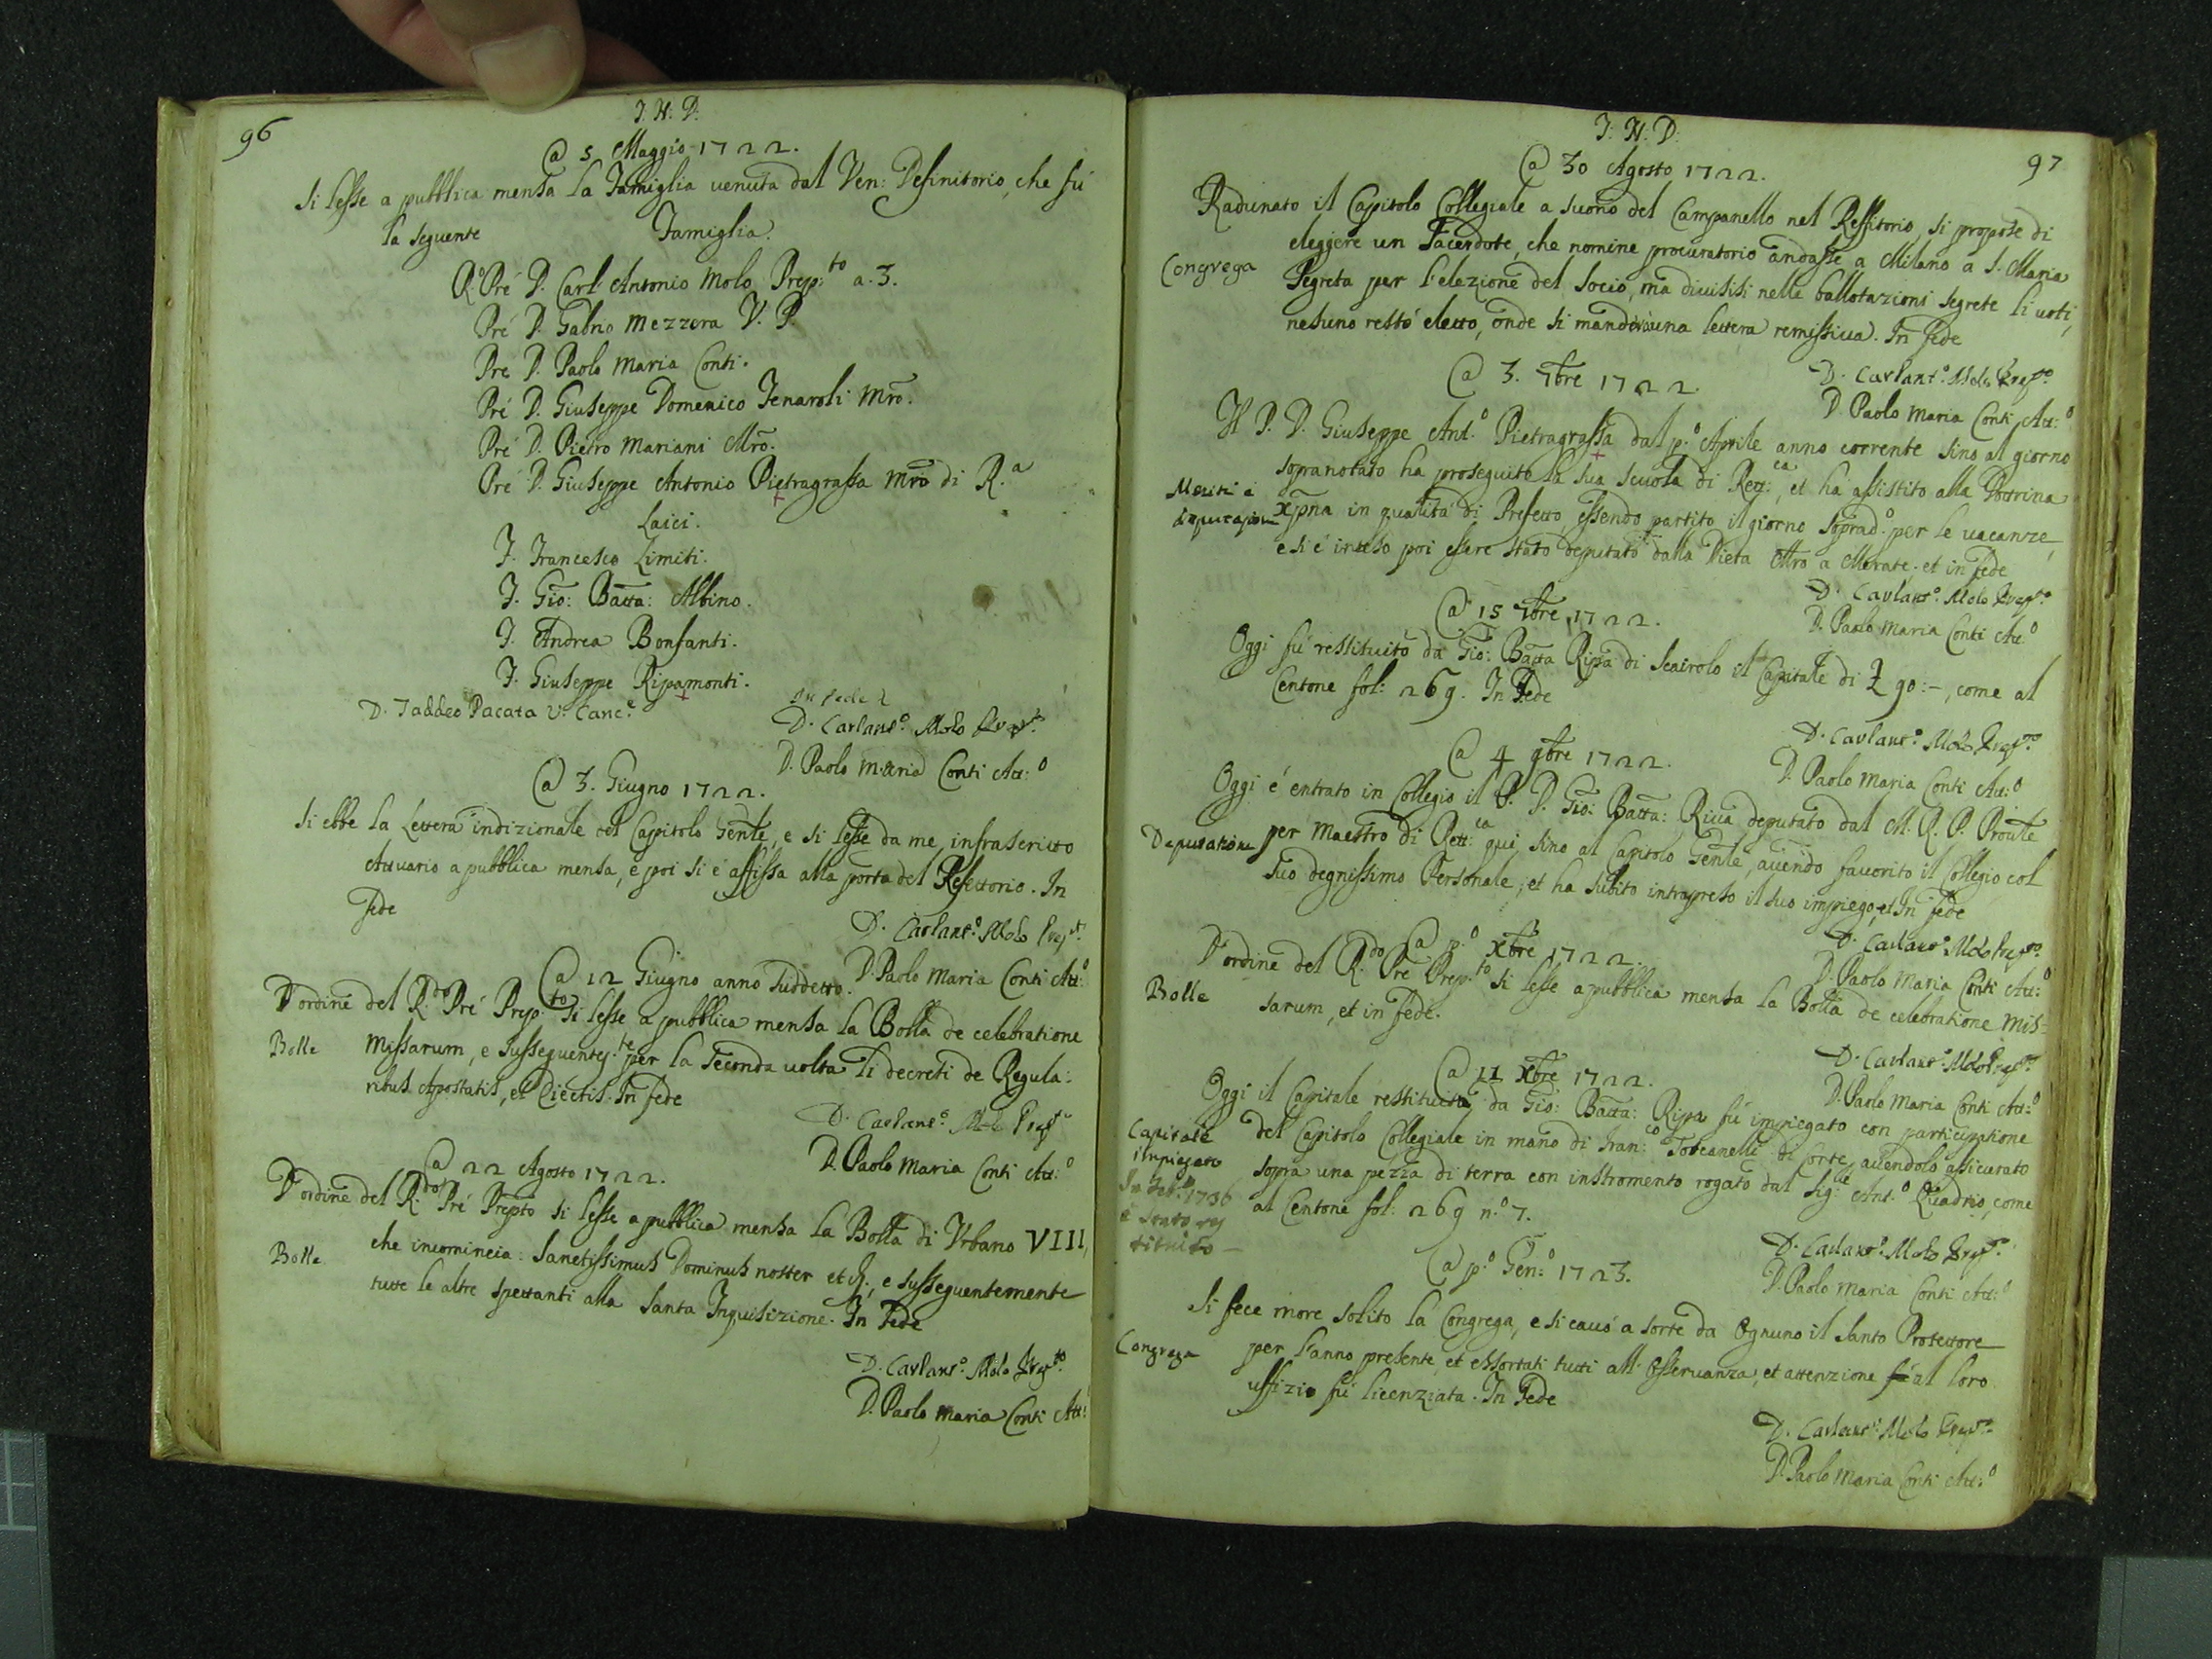 96
J. H. D.
@ 5 Maggio 1722.
Si lesse a pubblica mensa la Famiglia venuta dal Ven: Definitorio, che fú
la seguente Famiglia.
R.o Pré D. Carl' Antonio Molo Prep:to a. 3.
Pré D. Gabrio Mezzera V. P.
Pre D. Paolo Maria Conti.
Pré D. Giuseppe Domenico Fenaroli Mro.
Pré D. Pietro Mariani Mro.
Pré D. Giuseppe Antonio Pietragrassa Mro di R.a
Laici.
F. Francesco Limiti.
F. Gio: Batta: Albino.
F. Andrea Bonfanti.
F. Giuseppe Ripamonti.
D. Taddeo Pacata V. Canc.e
In fede
D. Carlant.o Molo Prep.to
D. Paolo Maria Conti Att:o
@ 3. Giugno 1722.
Si ebbe la Lettera indizionale del Capitolo Genle, e si lesse da me infrascritto
Attuario a pubblica mensa, e poi si é affissa alla porta del Refettorio. In
fede
D. Carlant.o Molo Prep.to
D. Paolo Maria Conti Att:o
@ 12 Giugno anno suddetto.
D'ordine del R.do Pré Prep.to si lesse a pubblica mensa la Bolla de celebratione
Bolle Missarum, e susseguentem.te per la seconda volta li decreti de Regula:
ribus Apostatis, et Eiectis. In fede
D. Carlant.o Molo Prep.to
D. Paolo Maria Conti Att:o
@ 22 Agosto 1722.
D'ordine del R.do Pré Prepto si lesse a pubblica mensa la Bolla di Urbano VIII,
Bolle che incomincia: Sanctissimus Dominus noster et c., e susseguentemente
tutte le altre spettanti alla Santa Inquisizione. In Fede
D. Carlant.o Molo Prep.to
D. Paolo Maria Conti Att:
97
J. H. D.
@ 30 Agosto 1722.
Radunato il Capitolo Collegiale a suono del Campanello nel Reffitorio, si propose di
eleggere un Sacerdote, che nomine procuratorio andasse a Milano a S. Maria
Congrega Segreta per l'elezione del Socio, ma divisisi nelle ballotazioni segrete li voti,
nesuno restó eletto, onde si manderá una lettera remissiva. In fede
D. Carlant.o Molo Prep.to
D. Paolo Maria Conti Att:o
@ 3. 7bre 1722.
Il P. D. Giuseppe Ant.o Pietragrassa dal p.o Aprile anno corrente sino al giorno
sopranotato ha proseguito la sua scuola di Rett:ca, et ha assistito alla Dottrina
Meriti e
deputazione xpna in qualitá di Prefetto, essendo partito il giorno soprad.o per le vacanze,
e si é inteso poi essere stato deputato dalla Dieta Mro a Merate. et in fede
D. Carlant.o Molo Prep.to
D. Paolo Maria Conti Att:o
@ 15 7bre 1722.
Oggi fú restituito da Gio: Batta Ripa di Scairolo il Capitale di £ 90:-, come al
Centone fol: 269. In Fede
D. Carlant.o Molo Prep.to
D. Paolo Maria Conti Att:o
@ 4 9bre 1722.
Oggi é entrato in Collegio il P. D. Gio: Batta: Riva deputato dal M. R. P. Proule
Deputatione per Maestro di Rett:ca qui, sino al Capitolo Genle, avendo favorito il Collegio col
suo degnissimo Personale, et ha subito intrapreso il suo impiego, et In fede
D. Carlant.o Molo Prep.to
D. Paolo Maria Conti Att:o
@ p.o Xbre 1722.
D'ordine del R.do Pre Prep.to si lesse a pubblica mensa la Bolla de celebratione Mis-
Bolle sarum, et in fede.
D. Carlant.o Molo Prep.to
D. Paolo Maria Conti Att:o
@ 11 Xbre 1722.
Oggi il Capitale restituito da Gio: Batta: Ripa fú impiegato con participatione
Capitale
impiegato del Capitolo Collegiale in mano di Fran:co Toscanelli di sorte, avendolo assicurato
sopra una pezza di terra con instromento rogato dal Sig.re Ant.o Quadrio, come
al Centone fol: 269 n.o 7.
In Feb.o 1736
é stato res
tituito —
D. Carlant.o Molo Prep.to
D. Paolo Maria Conti Att:o
@ p.o Gen:o 1723.
Si fece more solito la Congrega, e si cavó a sorte da Ognuno il Santo Protettore
Congrega per l'anno presente, et essortati tutti all'Osservanza, et attenzione al loro
uffizio fú licenziata. In Fede
D. Carlant.o Molo Prep.to
D. Paolo Maria Conti Att:o